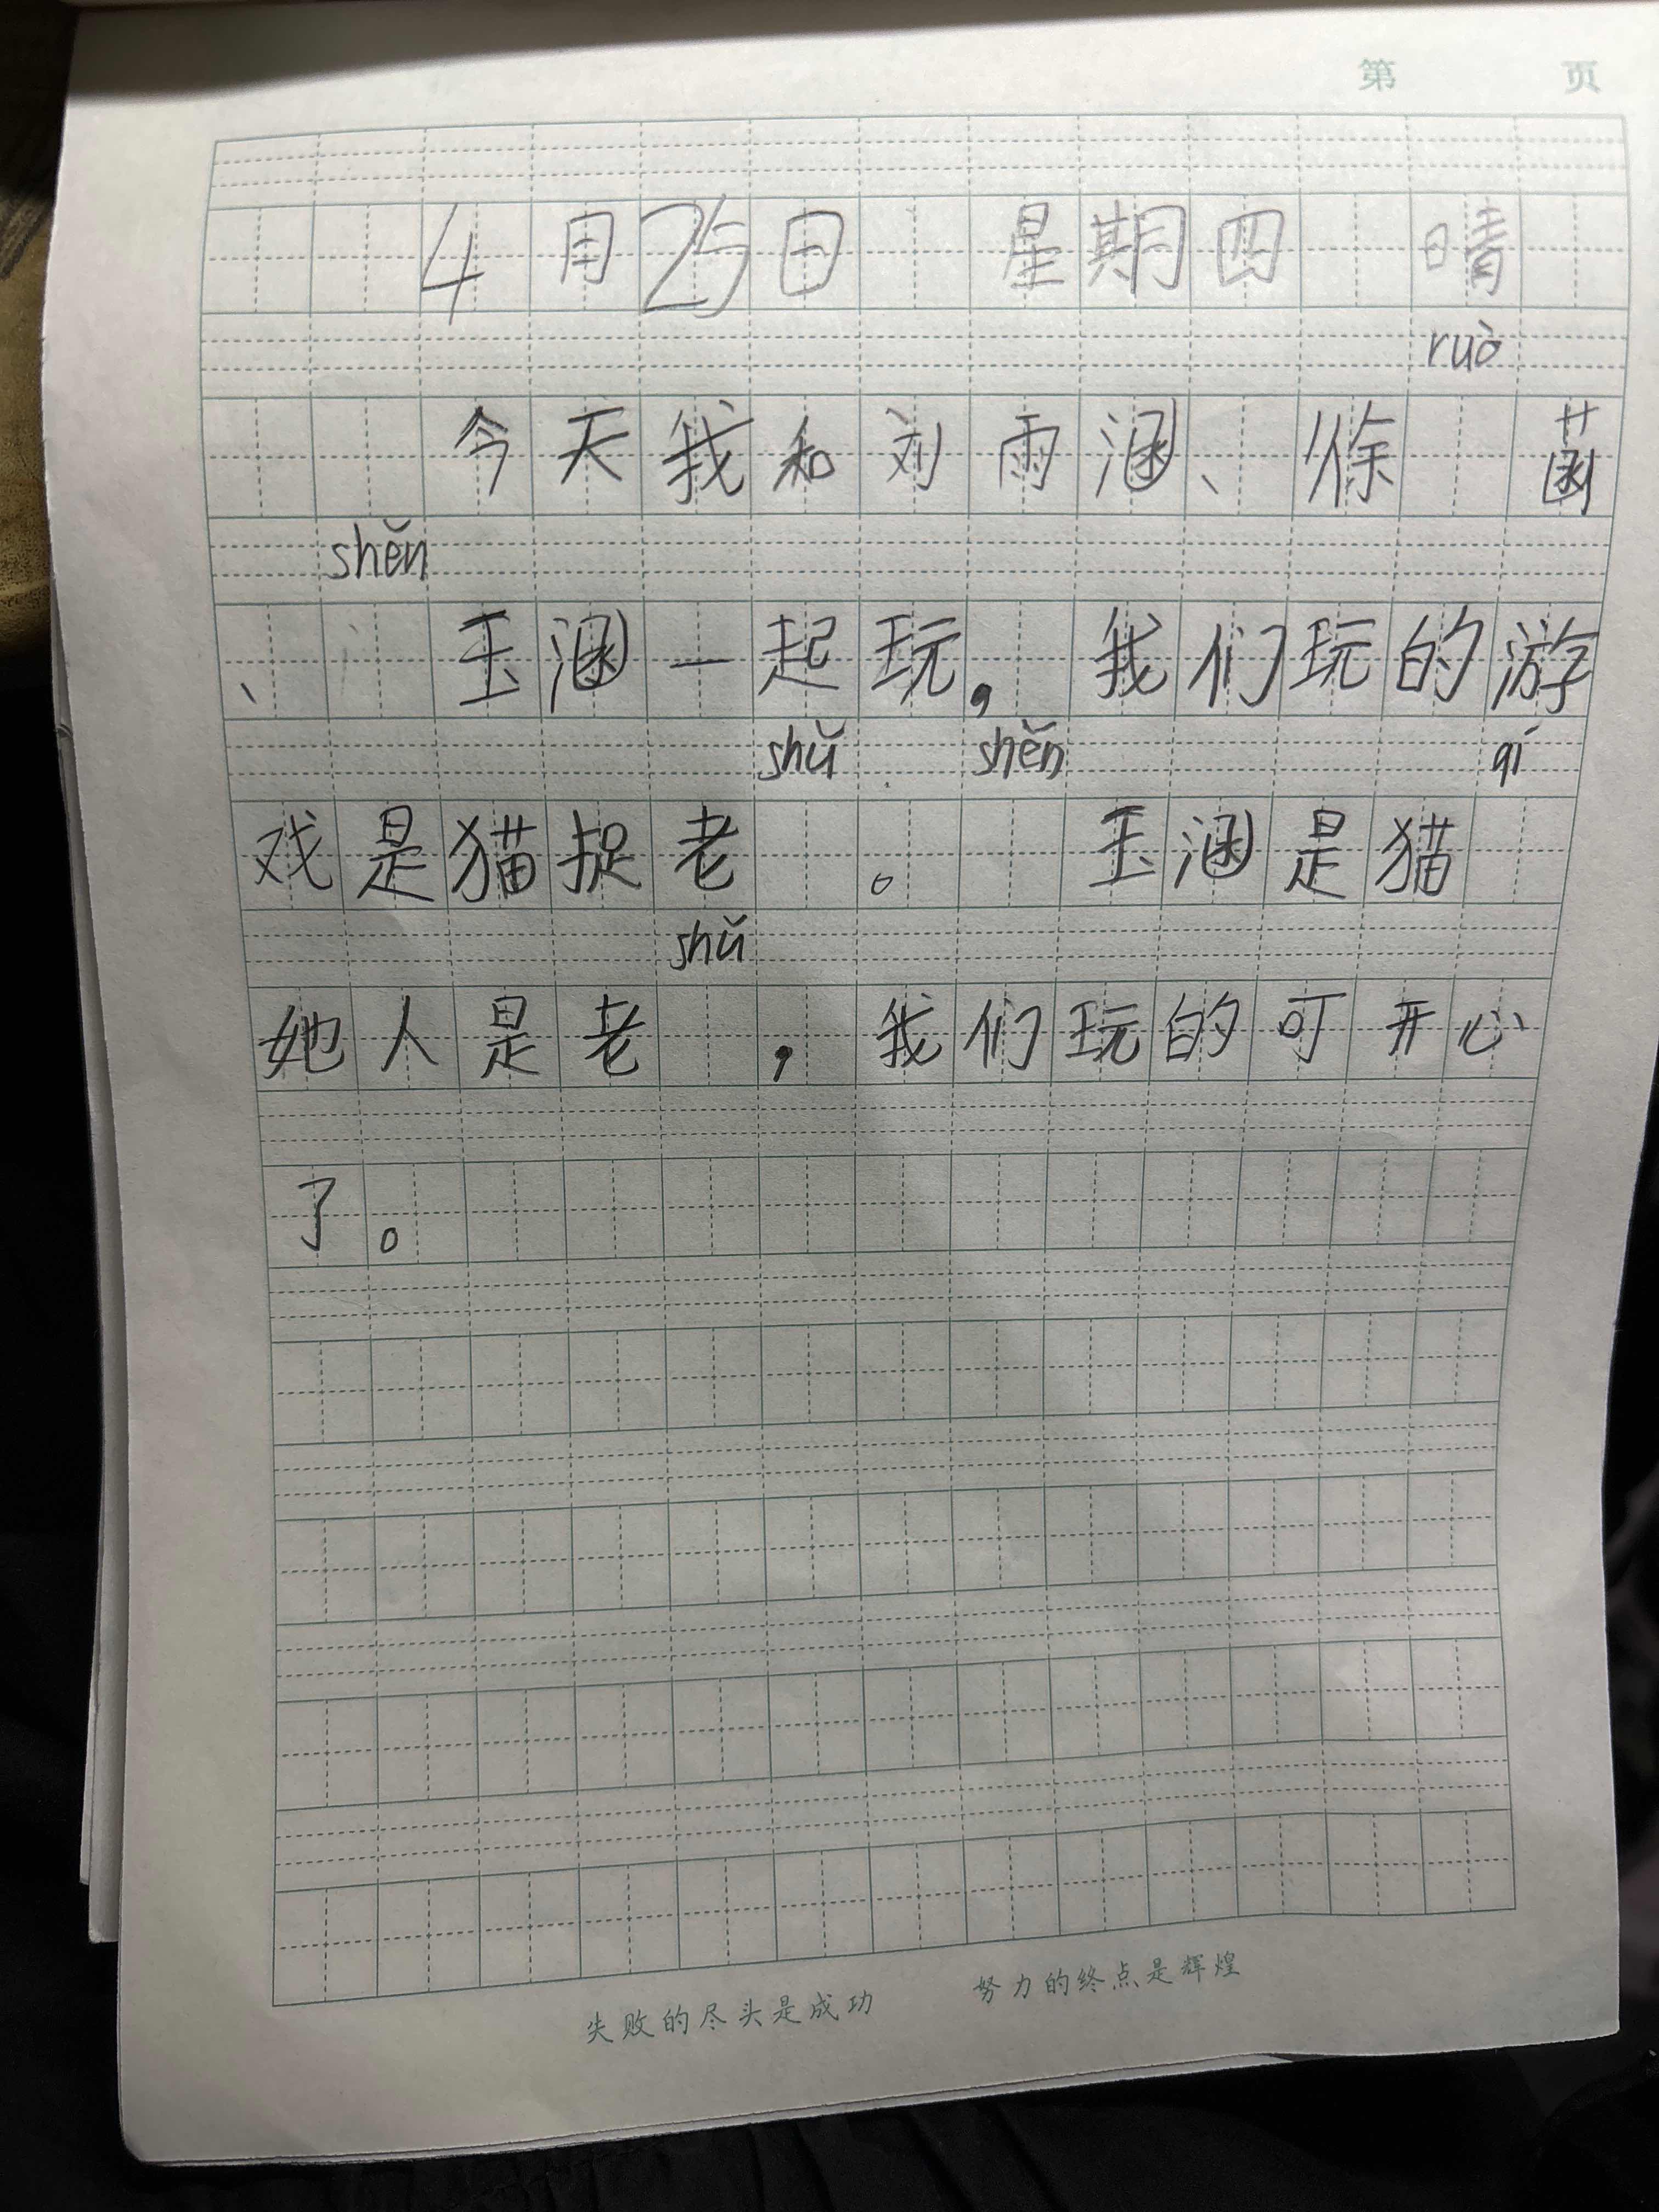 第 页
4月25日 星期四 晴
ruò
今天我和刘雨涵、徐 菡
shěn
、 玉涵一起玩，我们玩的游
shǔ shěn qí
戏是猫捉老 。 玉涵是猫
shǔ
她人是老 ，我们玩的可开心
了。
失败的尽头是成功 努力的终点是辉煌